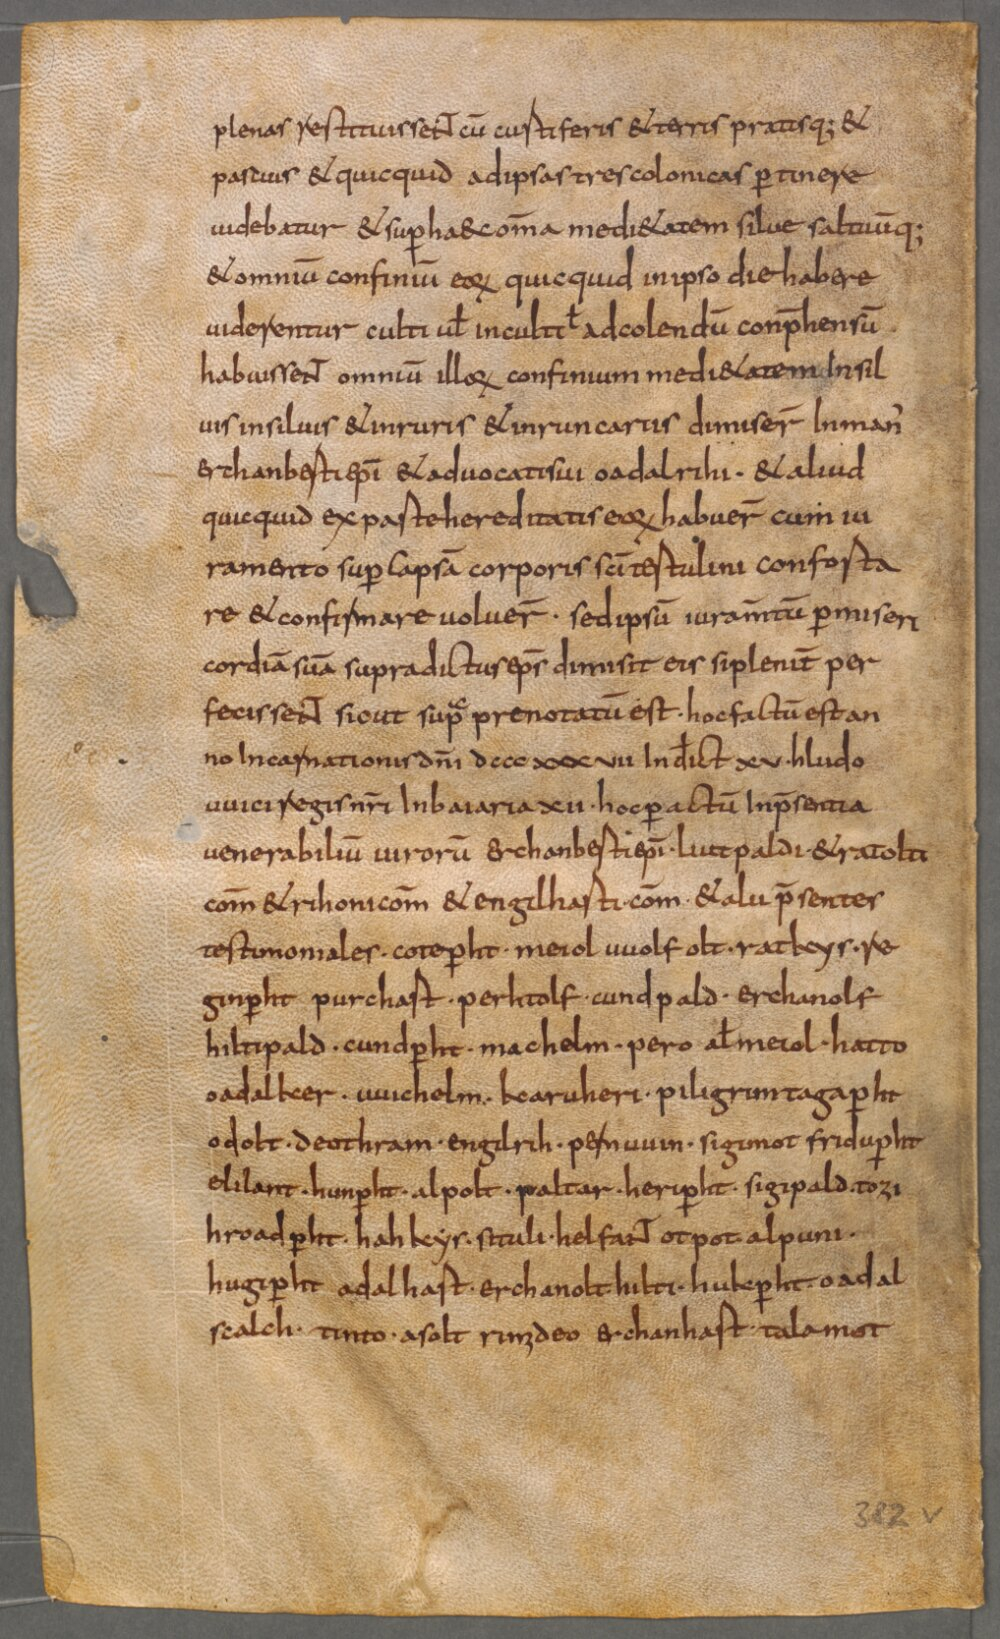 plenas restituissent cū custiferis & terris pratisq; &
pascuis & quicquid adipsas tres colonicas ꝑtinere
uidebatur & suꝑ ha&c om̄a medi&atem silue saltuūq;
& omniū confiniū eoꝝ quicquid inipso die habere
uiderentur culti uł inculti ł adcolendū conp̄hensū
habuissent omniū illoꝝ confinium medi&atem Insil
uis insiluis & inruris & inruncartis dimiser̄ Inman̄
erchanbesti ep̄i & aduocati sui oadalrihi · & aliud
quicquid ex paste hereditatis eoꝝ habuer̄ cum iu
ramento suꝑ Capsā corporis sc̄i testulini confosta
re & confirmare uoluer̄ · sed ipsū iuram̄tū ꝑ miseri
cordiā suā supradictus ep̄s dimisit eis si plenit̄ per
fecissent sicut supᵃ prenotatū est · hoc factū est an
no Incarnationis dn̄i dccc xxx vii Indict̄ xv · hludo
uuici regis nr̄i In baiaria xii · hoc ꝑactū In p̄sentia
uenerabiliū uirorū erchanbesti ep̄i · luitpaldi · & ratolti
com̄ & rihoni com̄ & engilhasti · com̄ · & alii p̄sentes
testimoniales · coteꝑht · meiol uuolfolt · ratkys · re
ginꝑht purchast · perhtolf · cundpald · erchanolf
hiltipald · cundꝑht · machelm · pero ał meiol · hatto
oadalker · uuichelm · kearuheri · piligrim tagaꝑht
odolt · deothram · engilrih · pernuuin · sigimot friduꝑht
elilant · hunꝑht · alpolt · paltar · heriꝑht · sigipald · tozi
hroadꝑht · hahkys · situli · helfant otpot · alpuni ·
hugiꝑht adalhast · erchanolt · hilti · hukeꝑht · oadal
scalch · tinto · asolt rimdeo erchanhast · talamot
382 v